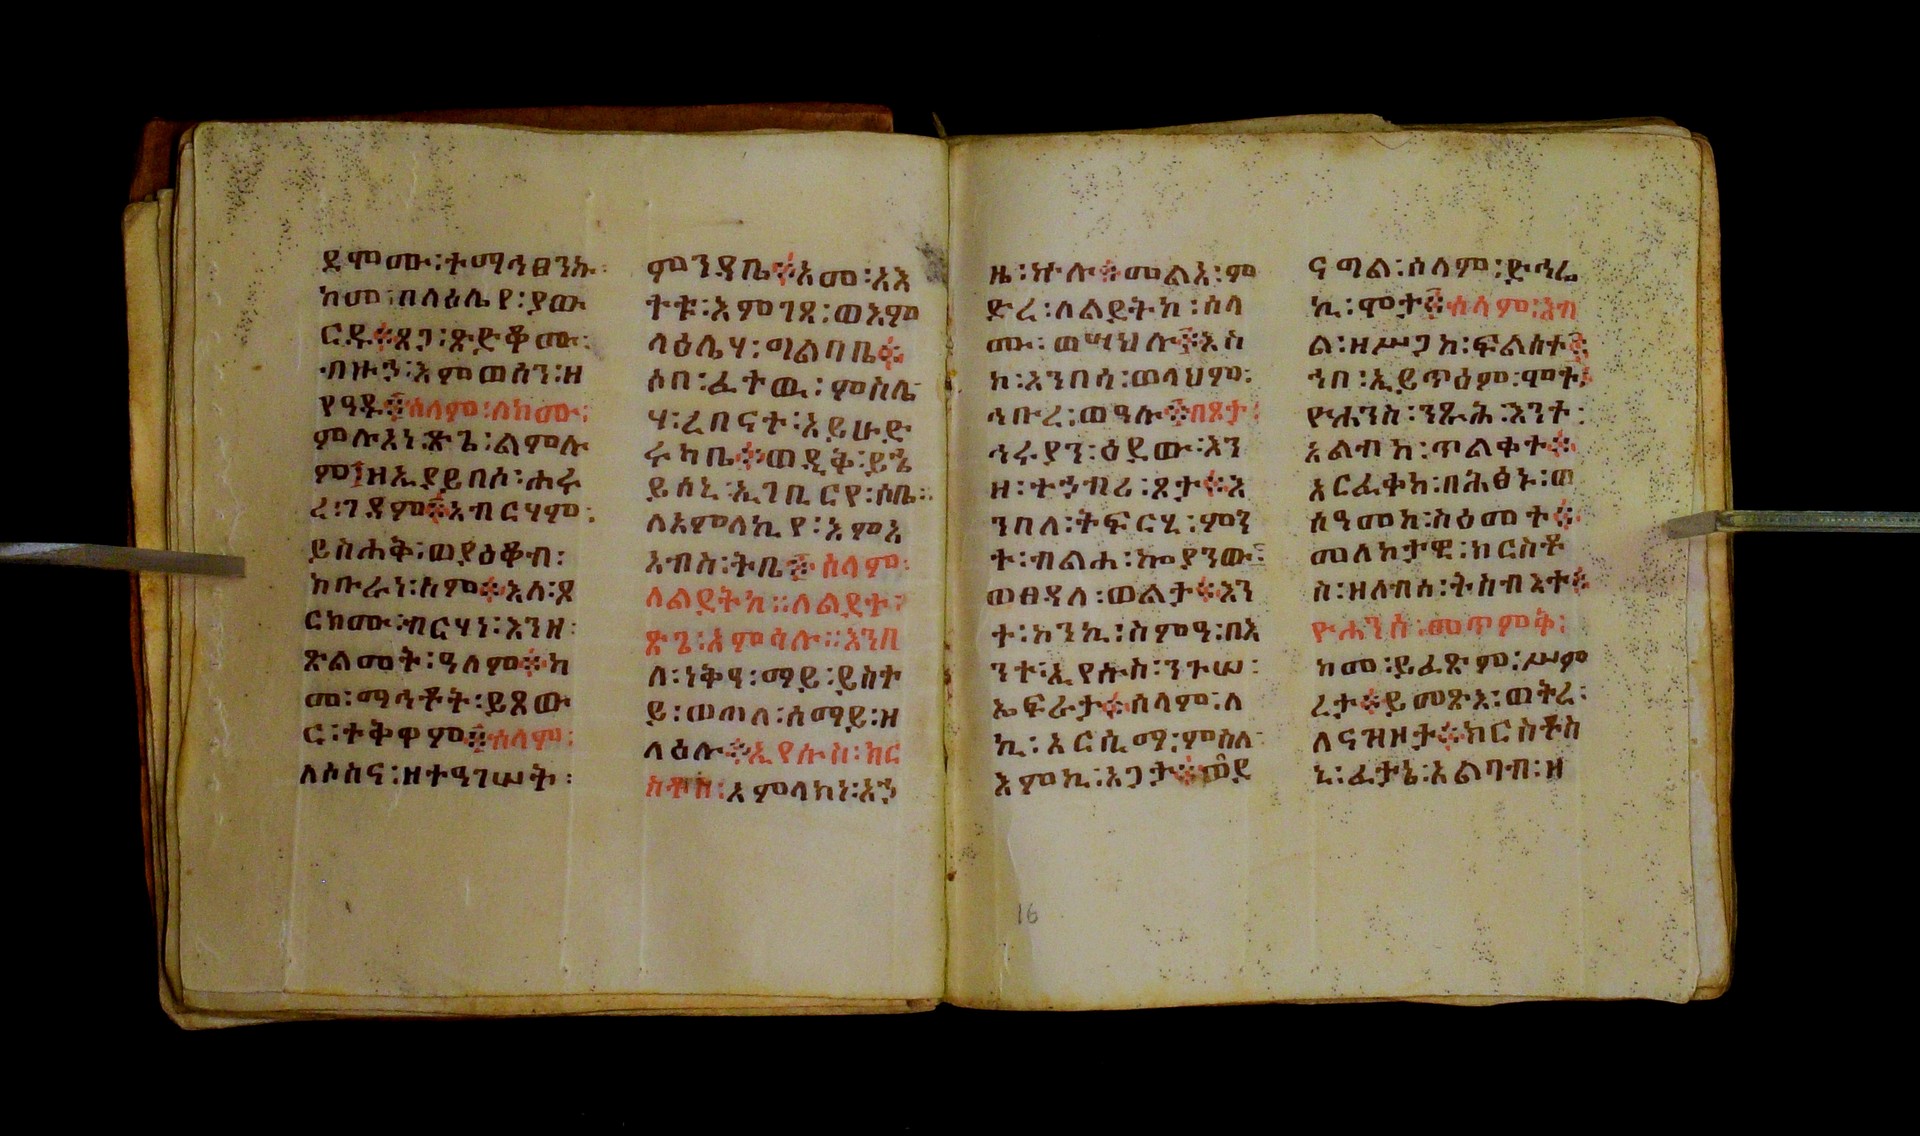 ደሞሙ፡ተማኅፀንኩ፡
ከመ፡በላዕሌየ፡ያው
ርዱ፨ጸጋ፡ጽድቆሙ፡
ብዙኃ፡እምወሰን፡ዘ
የዓዱ፨ሰላም፡ለክሙ፡
ምሉአነ፡ጽጌ፡ልምሉ
ም፤ዘኢያይበሰ፡ሐሩ
ረ፡ገዳም፨አብርሃም፡
ይስሐቅ፡ወያዕቆብ፡
ክቡራነ፡ስም፨እለ፡ጸ
ርክሙ፡ብርሃነ፡እንዘ፡
ጽልመት፡ዓለም፨ከ
መ፡ማኅቶት፡ይጸው
ር፡ተቅዋም፨ሰላም፡
ለሶስና፡ዘተዓገሠት፡
ምንዳቤ፨አመ፡አእ
ተቱ፡እምገጻ፡ወእም
ላዕሌሃ፡ግልባቤ፨
ሶበ፡ፈተዉ፡ምስሌ
ሃ፡ረበናተ፡አይሁድ
ሩካቤ፨ወዲቅ፡ይኄ
ይሰኒ፡ኢገቢርየ፡ሶቤ፡
ለአምላኪየ፡እምአ
አብስ፡ትቤ፨ሰላም፡
ለልደትከ፡፡ለልደተ፡
ጽጌ፡አምሳሉ፡፡እንበ
ለ፡ነቅዓ፡ማይ፡ይስተ
ይ፡ወጠለ፡ሰማይ፡ዘ
ላዕሉ፨ኢየሱስ፡ክር
ስቶስ፡አምላክነ፡እኃ
ዜ፡ኵሉ፨መልአ፡ም
ድረ፡ለልደትከ፡ሰላ
ሙ፡ወሣህሉ፨እስ
ከ፡እንበሳ፡ወላህም፡
ኅቡረ፡ወዓሉ፨በጾታ፡
ኅሩያን፡ዕደው፡እን
ዘ፡ተኃብሪ፡ጾታ፨እ
ንበለ፡ትፍርሂ፡ምን
ተ፡ብልሐ፡ኰያንው፡
ወፀዳለ፡ወልታ፨እን
ተ፡አንኪ፡ስምዓ፡በእ
ንተ፡ኢየሱስ፡ንጉሠ፡
ኤፍራታ፨ሰላም፡ለ
ኪ፡አርሲማ፡ምስለ፡
እምኪ፡አጋታ፨ወ፳ደ
ናግል፡ሰላም፡ድኅሬ
ኪ፡ሞታ፨ሰላም፡እብ
ል፡ዘሥጋከ፡ፍልሰተ፨
ኀበ፡ኢይጥዕም፡ሞት፡
ዮሐንስ፡ንጹሕ፡እንተ፡
አልብከ፡ጥልቀተ፨
አርፈቀከ፡በሕፅኑ፡ወ
ሰዓመከ፡ስዕመተ፨
መለኮታዊ፡ክርስቶ
ስ፡ዘለብሰ፡ትስብእተ፨
ዮሐንስ፡መጥምቅ፡
ከመ፡ይፈጽም፡ሥም
ረታ፨ይመጽእ፡ወትረ፡
ለናዝዞታ፨ክርስቶስ
ኒ፡ፈታኔ፡አልባብ፡ዘ
16